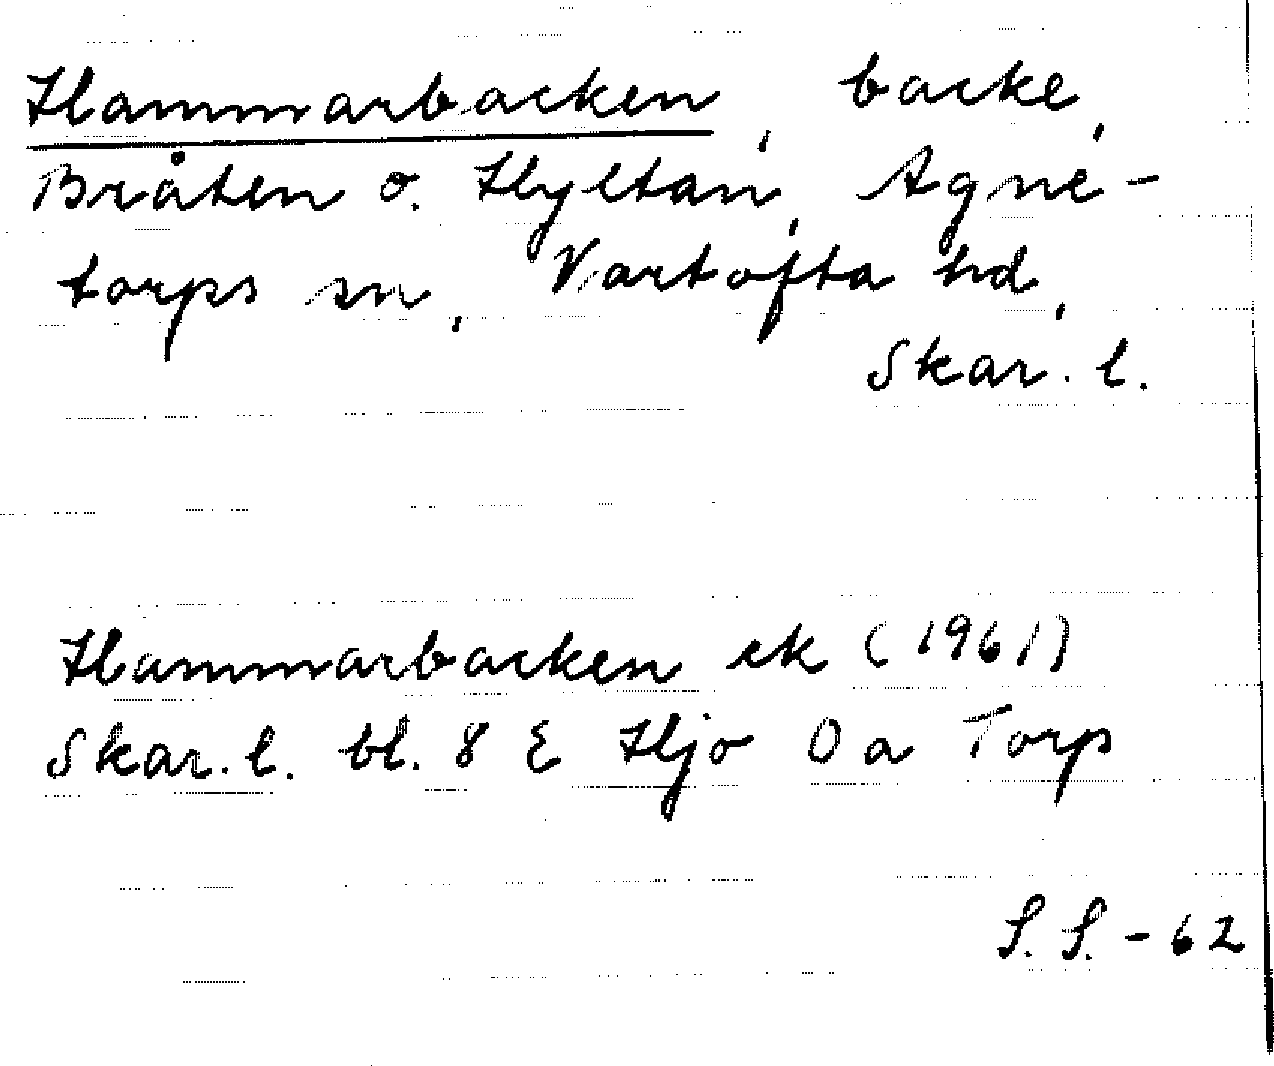 Hammarbacken, backe,
Bråten o. Hyltan, Agne-
torps sn, Vartofta hd,
Skar. l.
Hammarbacken ek (1961)
Skar. l. bl. 8 E Hjo 0 a Torp
S. S. - 62